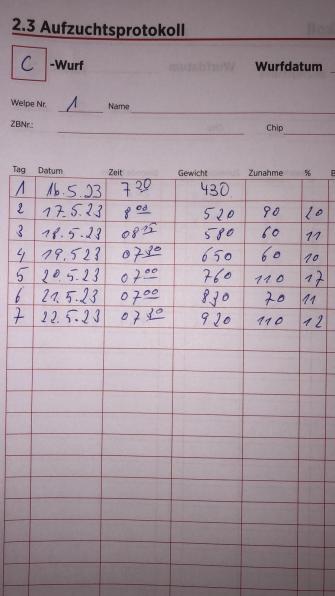 2.3 Aufzuchtsprotokoll
C -Wurf Wurfdatum
Welpe Nr. 1 Name
ZBNr.: Chip
Tag Datum Zeit Gewicht Zunahme %
1 16.5.23 7 20 430
2 17.5.23 8 00 520 90 20
3 18.5.23 08 15 580 60 11
4 19.523 07 30 650 60 10
5 20.5.23 07 00 760 110 17
6 21.5.23 07 00 830 70 11
7 22.5.23 07 30 920 110 12